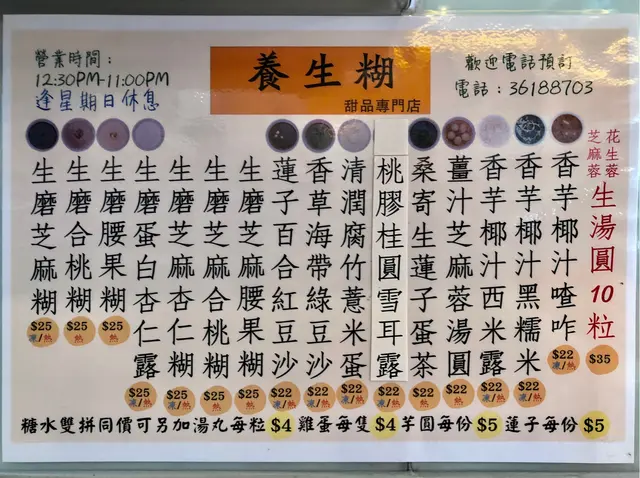 營業時間：
12:30PM-11:00PM
逢星期日休息
養生糊
甜品專門店
歡迎電話預訂
電話：36188703
生磨芝麻糊 $25 凍/熱
生磨合桃糊 $25 熱
生磨腰果糊 $25 熱
生磨蛋白杏仁露 $25 凍/熱
生磨芝麻杏仁糊 $25 熱
生磨芝麻合桃糊 $25 熱
生磨芝麻腰果糊 $25 熱
蓮子百合紅豆沙 $22 凍/熱
香草海帶綠豆沙 $22 凍/熱
清潤腐竹薏米蛋 $22 凍/熱
桃膠桂圓雪耳露 $22 凍/熱
桑寄生蓮子蛋茶 $22 凍/熱
薑汁芝麻蓉湯圓 $22 熱
香芋椰汁西米露 $22 凍/熱
香芋椰汁黑糯米 $22 凍/熱
香芋椰汁喳咋 $22 凍/熱
花生蓉
芝麻蓉
生湯圓10粒 $35
糖水雙拼同價可另加湯丸每粒$4 雞蛋每隻$4 芋圓每份$5 蓮子每份$5